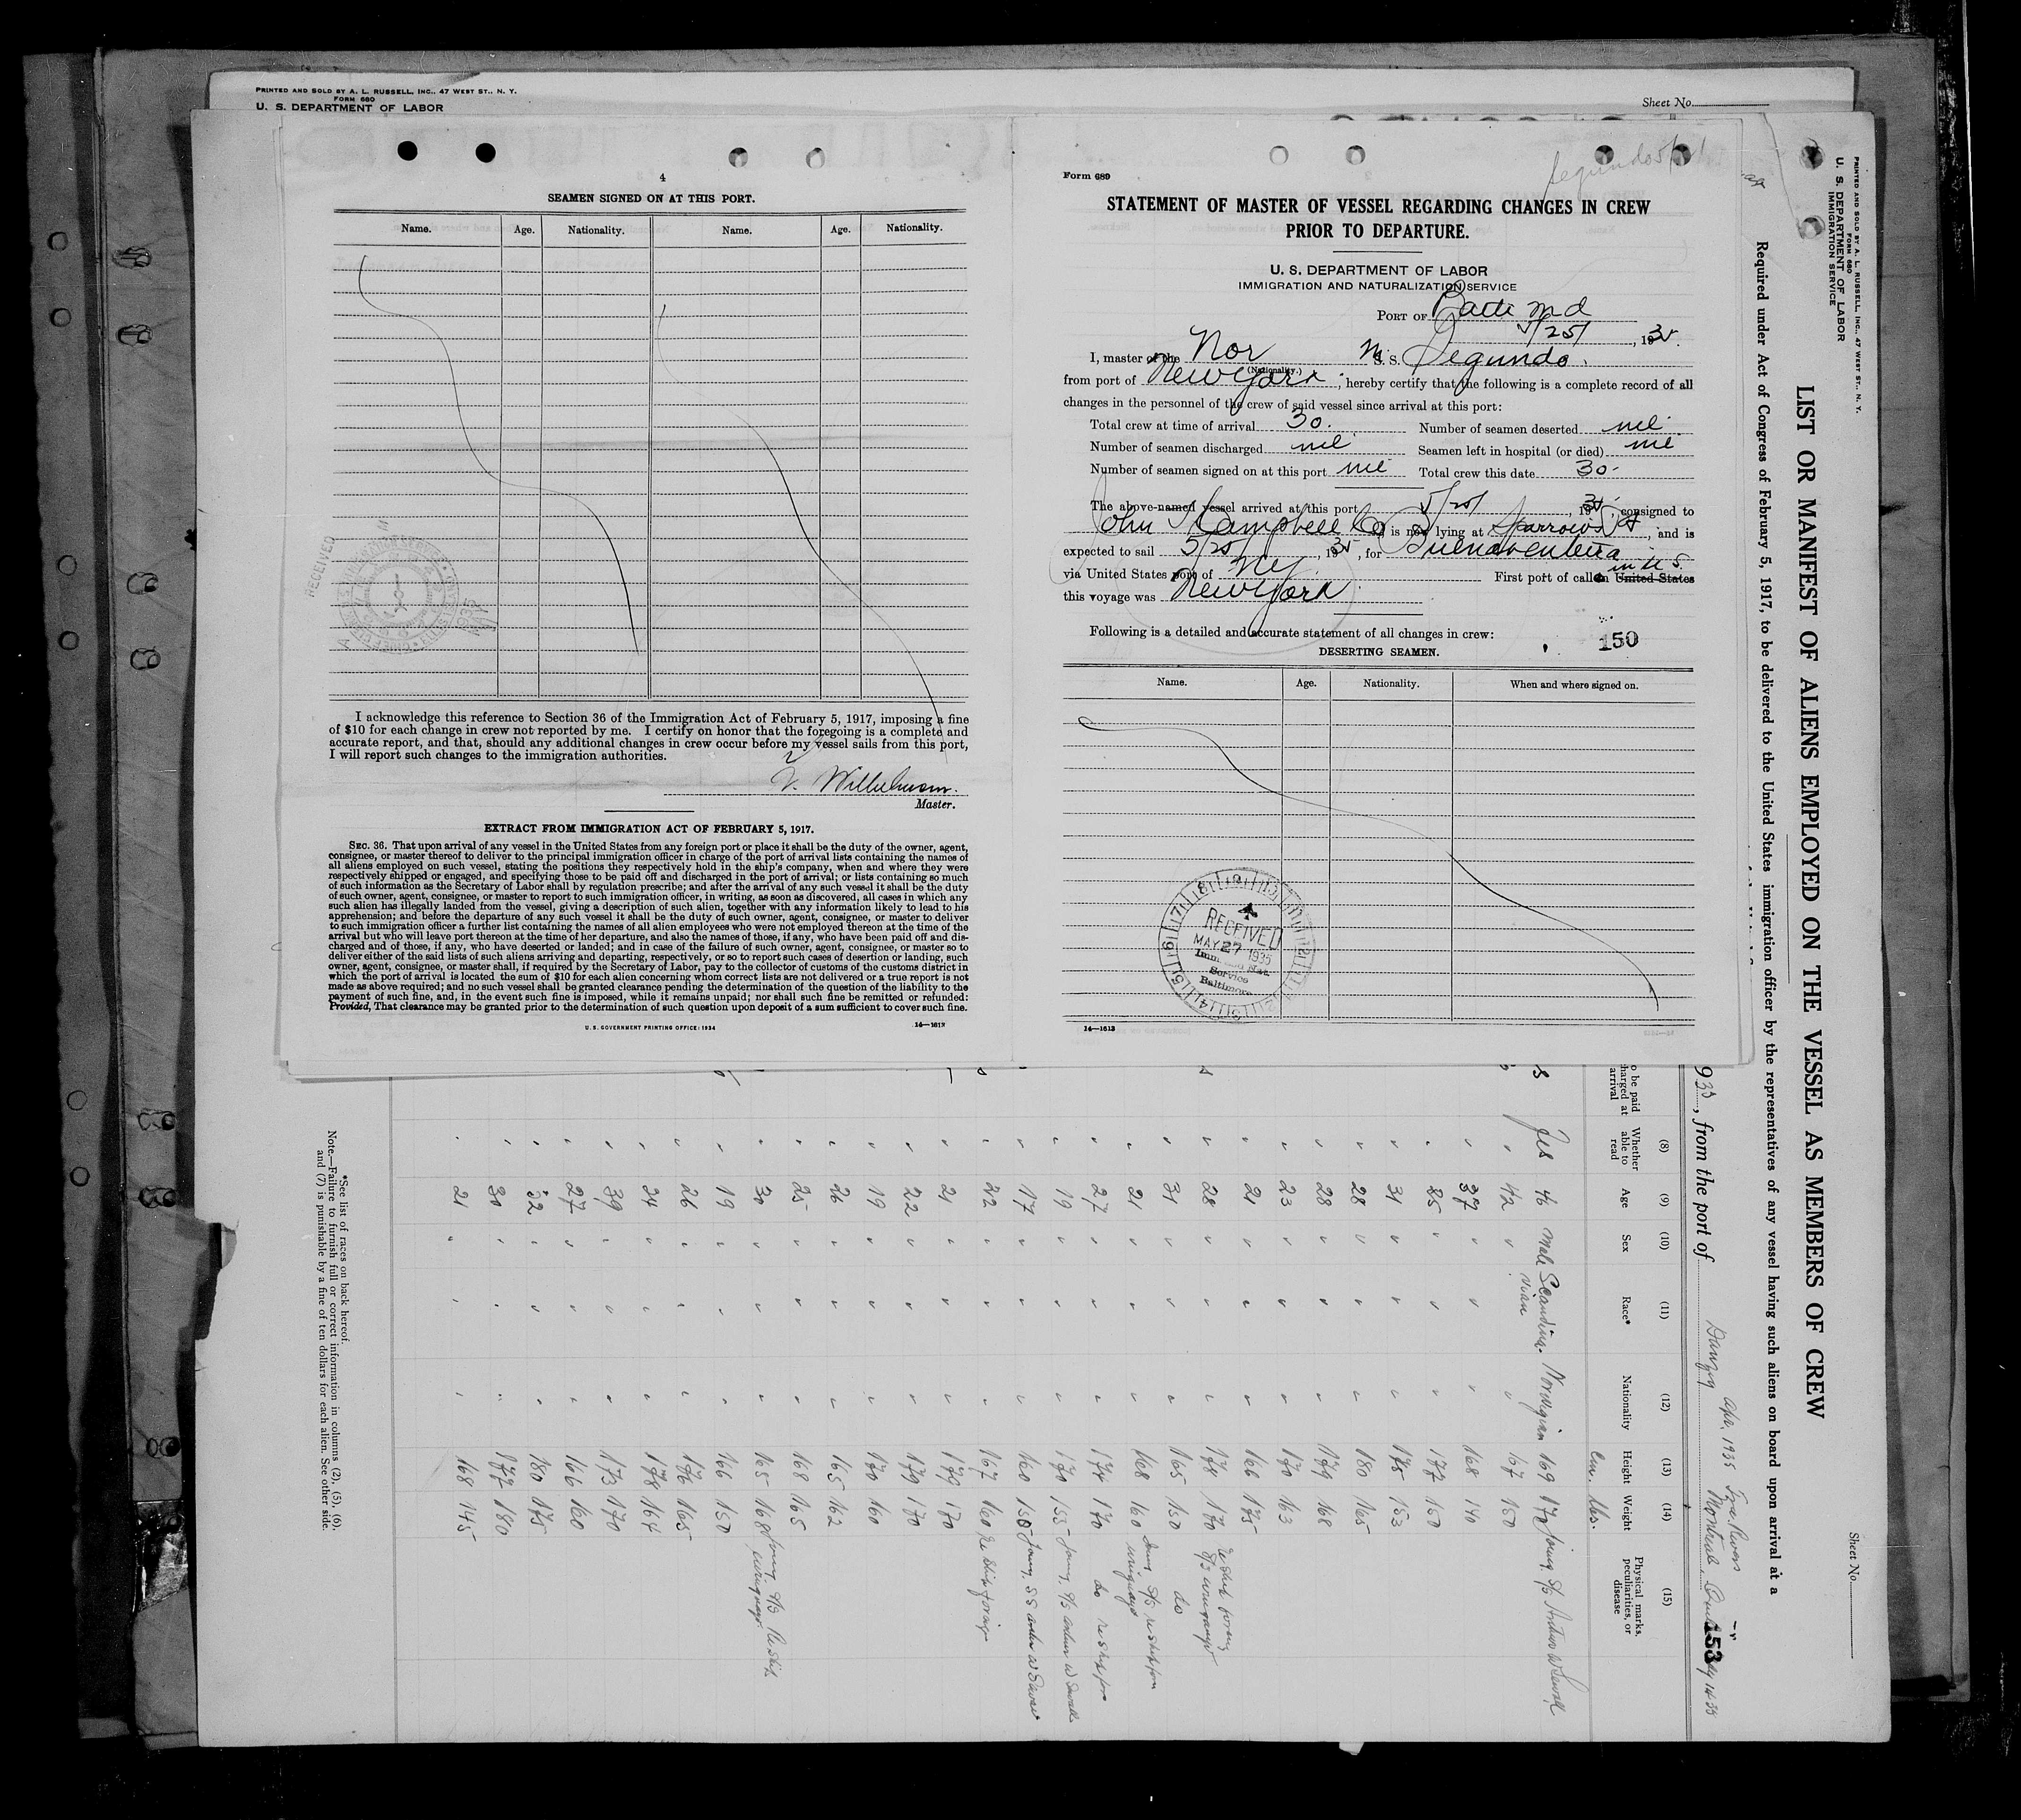 PRINTED AND SOLD BY A. L. RUSSELL, INC., 47 WEST ST., N. Y.
FORM 680
U. S. DEPARTMENT OF LABOR
Sheet No.
4
SEAMEN SIGNED ON AT THIS PORT.
Name. Age. Nationality. Name. Age. Nationality.
RECEIVED
I acknowledge this reference to Section 36 of the Immigration Act of February 5, 1917, imposing a fine
of $10 for each change in crew not reported by me. I certify on honor that the foregoing is a complete and
accurate report, and that, should any additional changes in crew occur before my vessel sails from this port,
I will report such changes to the immigration authorities.
Master.
EXTRACT FROM IMMIGRATION ACT OF FEBRUARY 5, 1917.
SEC. 36. That upon arrival of any vessel in the United States from any foreign port or place it shall be the duty of the owner, agent,
consignee, or master thereof to deliver to the principal immigration officer in charge of the port of arrival lists containing the names of
all aliens employed on such vessel, stating the positions they respectively hold in the ship's company, when and where they were
respectively shipped or engaged, and specifying those to be paid off and discharged in the port of arrival; or lists containing so much
of such information as the Secretary of Labor shall by regulation prescribe; and after the arrival of any such vessel it shall be the duty
of such owner, agent, consignee, or master to report to such immigration officer, in writing, as soon as discovered, all cases in which any
such alien has illegally landed from the vessel, giving a description of such alien, together with any information likely to lead to his
apprehension; and before the departure of any such vessel it shall be the duty of such owner, agent, consignee, or master to deliver
to such immigration officer a further list containing the names of all alien employees who were not employed thereon at the time of the
arrival but who will leave port thereon at the time of her departure, and also the names of those, if any, who have been paid off and dis-
charged and of those, if any, who have deserted or landed; and in case of the failure of such owner, agent, consignee, or master so to
deliver either of the said lists of such aliens arriving and departing, respectively, or so to report such cases of desertion or landing, such
owner, agent, consignee, or master shall, if required by the Secretary of Labor, pay to the collector of customs of the customs district in
which the port of arrival is located the sum of $10 for each alien concerning whom correct lists are not delivered or a true report is not
made as above required; and no such vessel shall be granted clearance pending the determination of the question of the liability to the
payment of such fine, and, in the event such fine is imposed, while it remains unpaid; nor shall such fine be remitted or refunded:
Provided, That clearance may be granted prior to the determination of such question upon deposit of a sum sufficient to cover such fine.
U. S. GOVERNMENT PRINTING OFFICE: 1934 14—1613
Segundo
Form 689
STATEMENT OF MASTER OF VESSEL REGARDING CHANGES IN CREW
PRIOR TO DEPARTURE.
U. S. DEPARTMENT OF LABOR
IMMIGRATION AND NATURALIZATION SERVICE
PORT OF Balto Md
5/25/, 1935.
I, master of the Nor M. S. Segundo.
(Nationality.)
from port of New York, hereby certify that the following is a complete record of all
changes in the personnel of the crew of said vessel since arrival at this port:
Total crew at time of arrival 30. Number of seamen deserted nil
Number of seamen discharged nil Seamen left in hospital (or died) nil
Number of seamen signed on at this port nil Total crew this date 30-
The above-named vessel arrived at this port 5/25/, 1935, consigned to
John S Campbell Co, is now lying at Sparrows Pt, and is
expected to sail 5/25/, 1935, for Buenaventura
via United States port of NY. First port of call in United States in U S.
this voyage was New York
Following is a detailed and accurate statement of all changes in crew:
150
DESERTING SEAMEN.
Name. Age. Nationality. When and where signed on.
RECEIVED
MAY 27 1935
Service
Baltimore
14—1613
PRINTED AND SOLD BY A. L. RUSSELL, INC., 47 WEST ST., N. Y.
FORM 680
U. S. DEPARTMENT OF LABOR
IMMIGRATION SERVICE
Sheet No.
LIST OR MANIFEST OF ALIENS EMPLOYED ON THE VESSEL AS MEMBERS OF CREW
Required under Act of Congress of February 5, 1917, to be delivered to the United States immigration officer by the representatives of any vessel having such aliens on board upon arrival at a
Apr. 1935
935, from the port of Danzig Montreal, 153
(8) (9) (10) (11) (12) (13) (14) (15)
o be paid
harged at
arrival
Whether able to read Age Sex Race* Nationality Height Weight Physical marks, peculiarities, or disease
Cm. lbs.
Yes 46 Male Scandina- vian Norwegian 169 170
42 167 150
37 168 140
35 177 150
31 175 153
28 180 165
28 179 168
23 170 163
21 166 175
28 178 170
31 165 150 do
21 168 160
27 174 170 do
19 170 155
17 160 150
22 167 160
21 179 170
22 179 170
19 170 160
26 165 162
25 168 165
30 165 168
19 166 150
26 176 165
24 178 164
39 173 170
27 166 160
32 180 175
30 177 180
21 168 145
*See list of races on back hereof.
Note.—Failure to furnish full or correct information in columns (2), (5), (6),
and (7) is punishable by a fine of ten dollars for each alien. See other side.